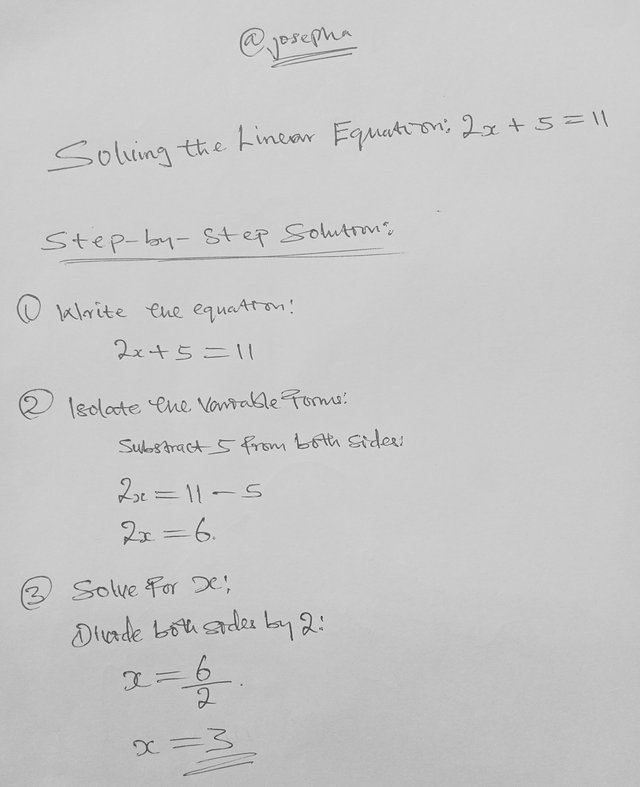 @josepha
Solving the Linear Equation: 2x + 5 = 11
Step-by-Step Solution:
① Write the equation:
2x + 5 = 11
② Isolate the Variable Forms:
Substract 5 from both sides:
2x = 11 - 5
2x = 6.
③ Solve for x:
Divide both sides by 2:
x = 6/2.
x = 3